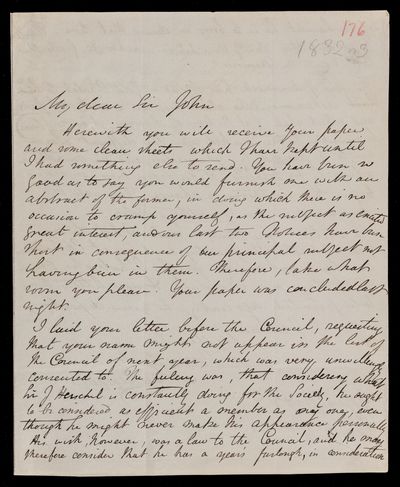 176
1832-3
My dear Sir John
Herewith you will receive your paper
and some clean sheets which I have kept until
I had something else to send. You have been so
good as to say you would furnish me with an
abstract of the former, in doing which there is no
occasion to cramp yourself, as the subject as excited
great interest, and our last two Notices have been
short in consequence of our principal subject not
having been in them. Therefore, take what
room you please. Your paper was concluded last
night.
I laid your letter before the Council, requesting
that your name might not appear in the list of
the Council of next year, which was very unwillingly
consented to. The feeling was, that considering what
Sir J Herschel is constantly doing for the Society, he ought
to be considered as efficient a member as any one, even
though he might never make his appearance personally.
His wish, however, was a law to the Council, and he may
therefore consider that he has a years furlough, in consideration